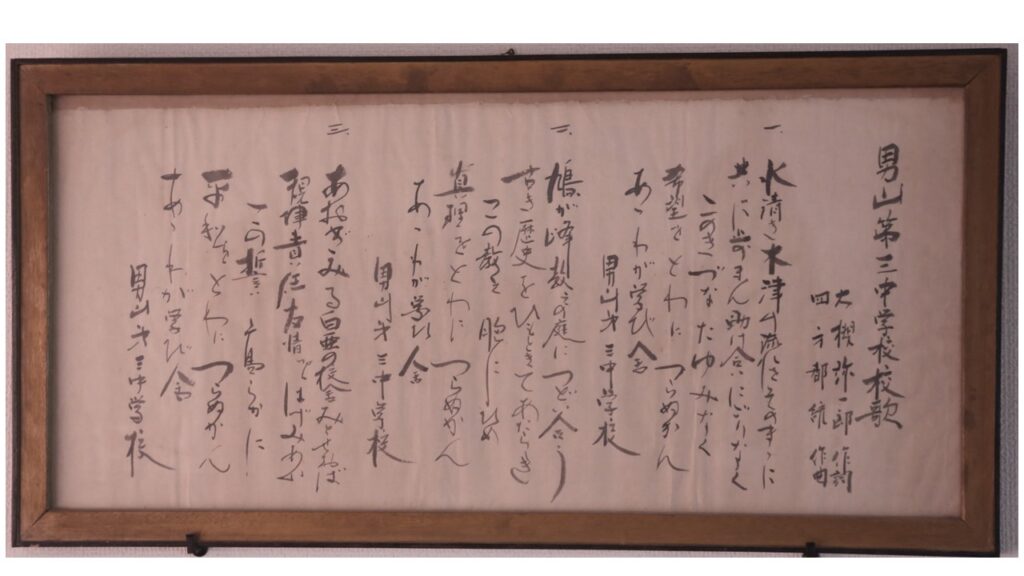 男山第三中学校校歌
大槻弥一郎 作詞
四方部 作曲
一、
水清き木津川の流れをそのまゝに
共に歩まん助け合いにごりなく
このきづなたゆみなく
希望をとわにつらぬかん
あゝわが学び舎
男山第三中学校
二、
鳩が峰教えの庭につどい合う
古き歴史をひもときてあたらき
この教を胸にひめ
真理をとわにつらぬかん
あゝわが学び舎
男山第三中学校
三、
あおぎみる白亜の校舎みとせねば
規律責任友情とはげみあふ
この誓い高らかに
平和をとわにつらぬかん
あゝわが学び舎
男山第三中学校